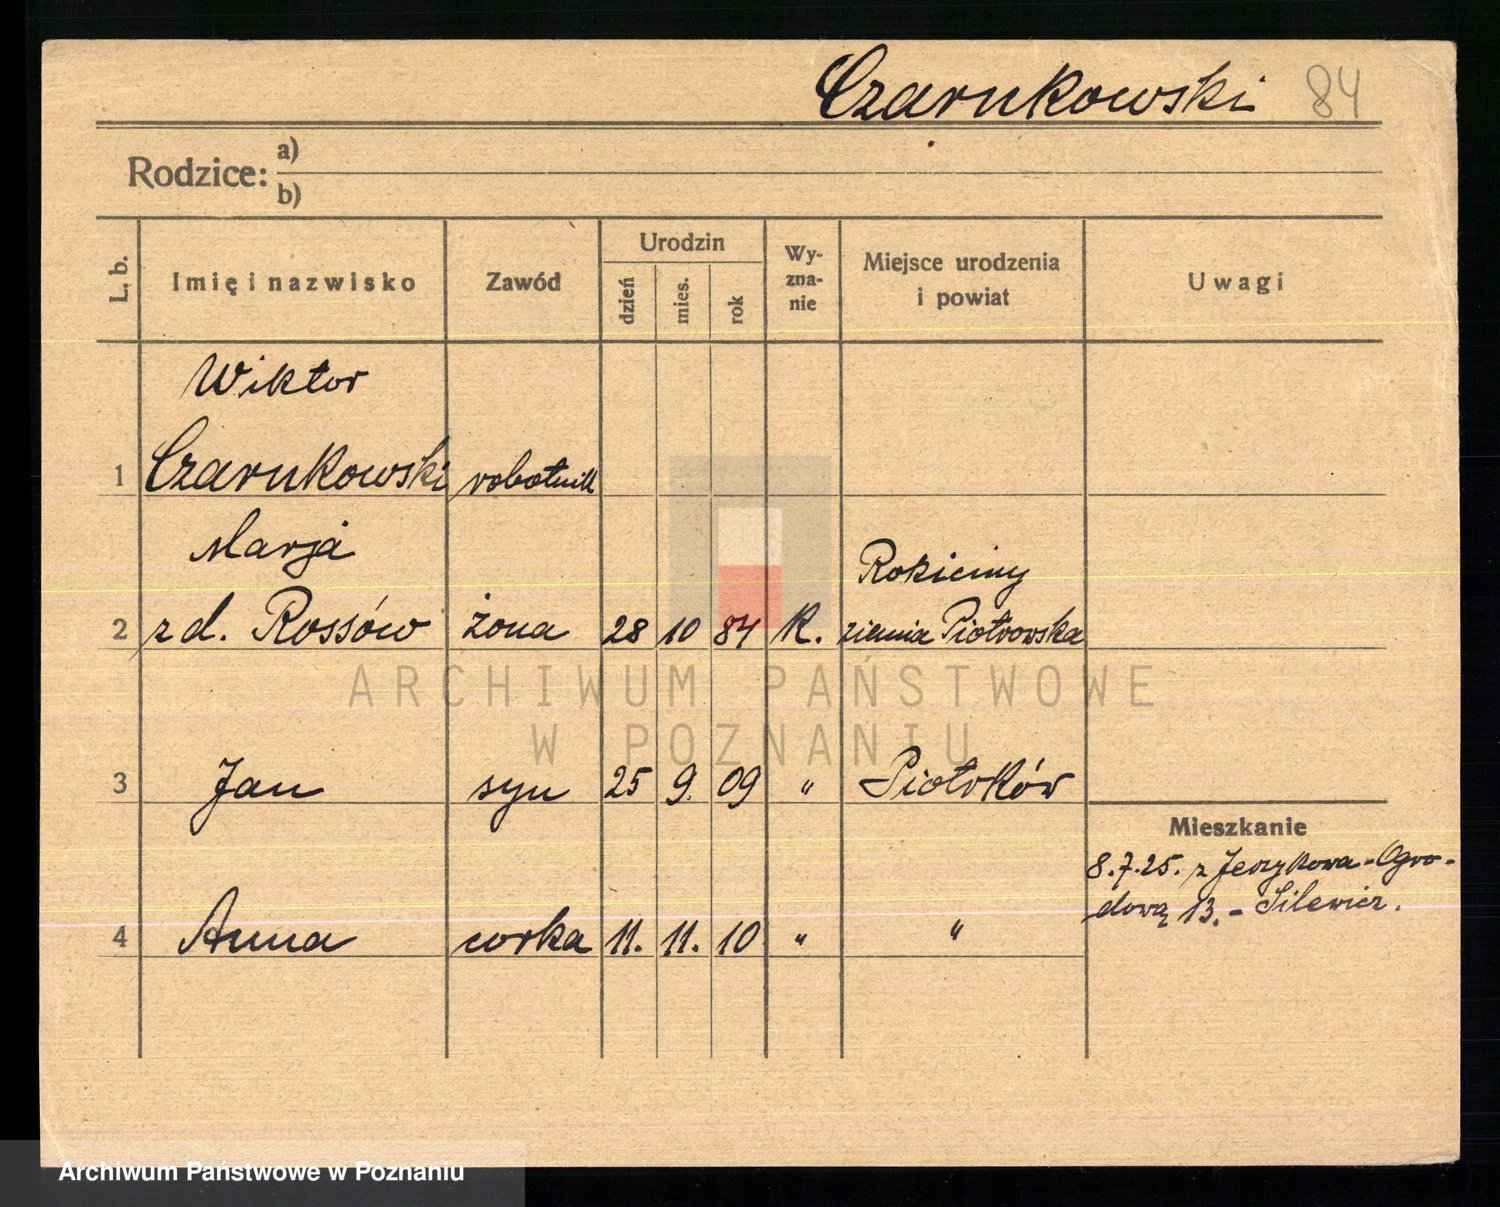 Czarnkowski 84
Rodzice: a)
b)
L. b.
Imię i nazwisko
Zawód
Urodzin
dzień
mies.
rok
Wy-
zna-
nie
Miejsce urodzenia
i powiat
Uwagi
Wiktor
1 Czarnkowski robotnik
Marja
Rokiciny
2 z d. Rossów żona 28 10 84 K. ziemia Piotrowska
ARCHIWUM PAŃSTWOWE
W POZNANIU
3 Jan syn 25 9. 09 " Piotrków
Mieszkanie
8.7.25. z Jerzykowa - Ogro-
dową 13. - Silewicz.
4 Anna corka 11. 11. 10 " "
Archiwum Państwowe w Poznaniu